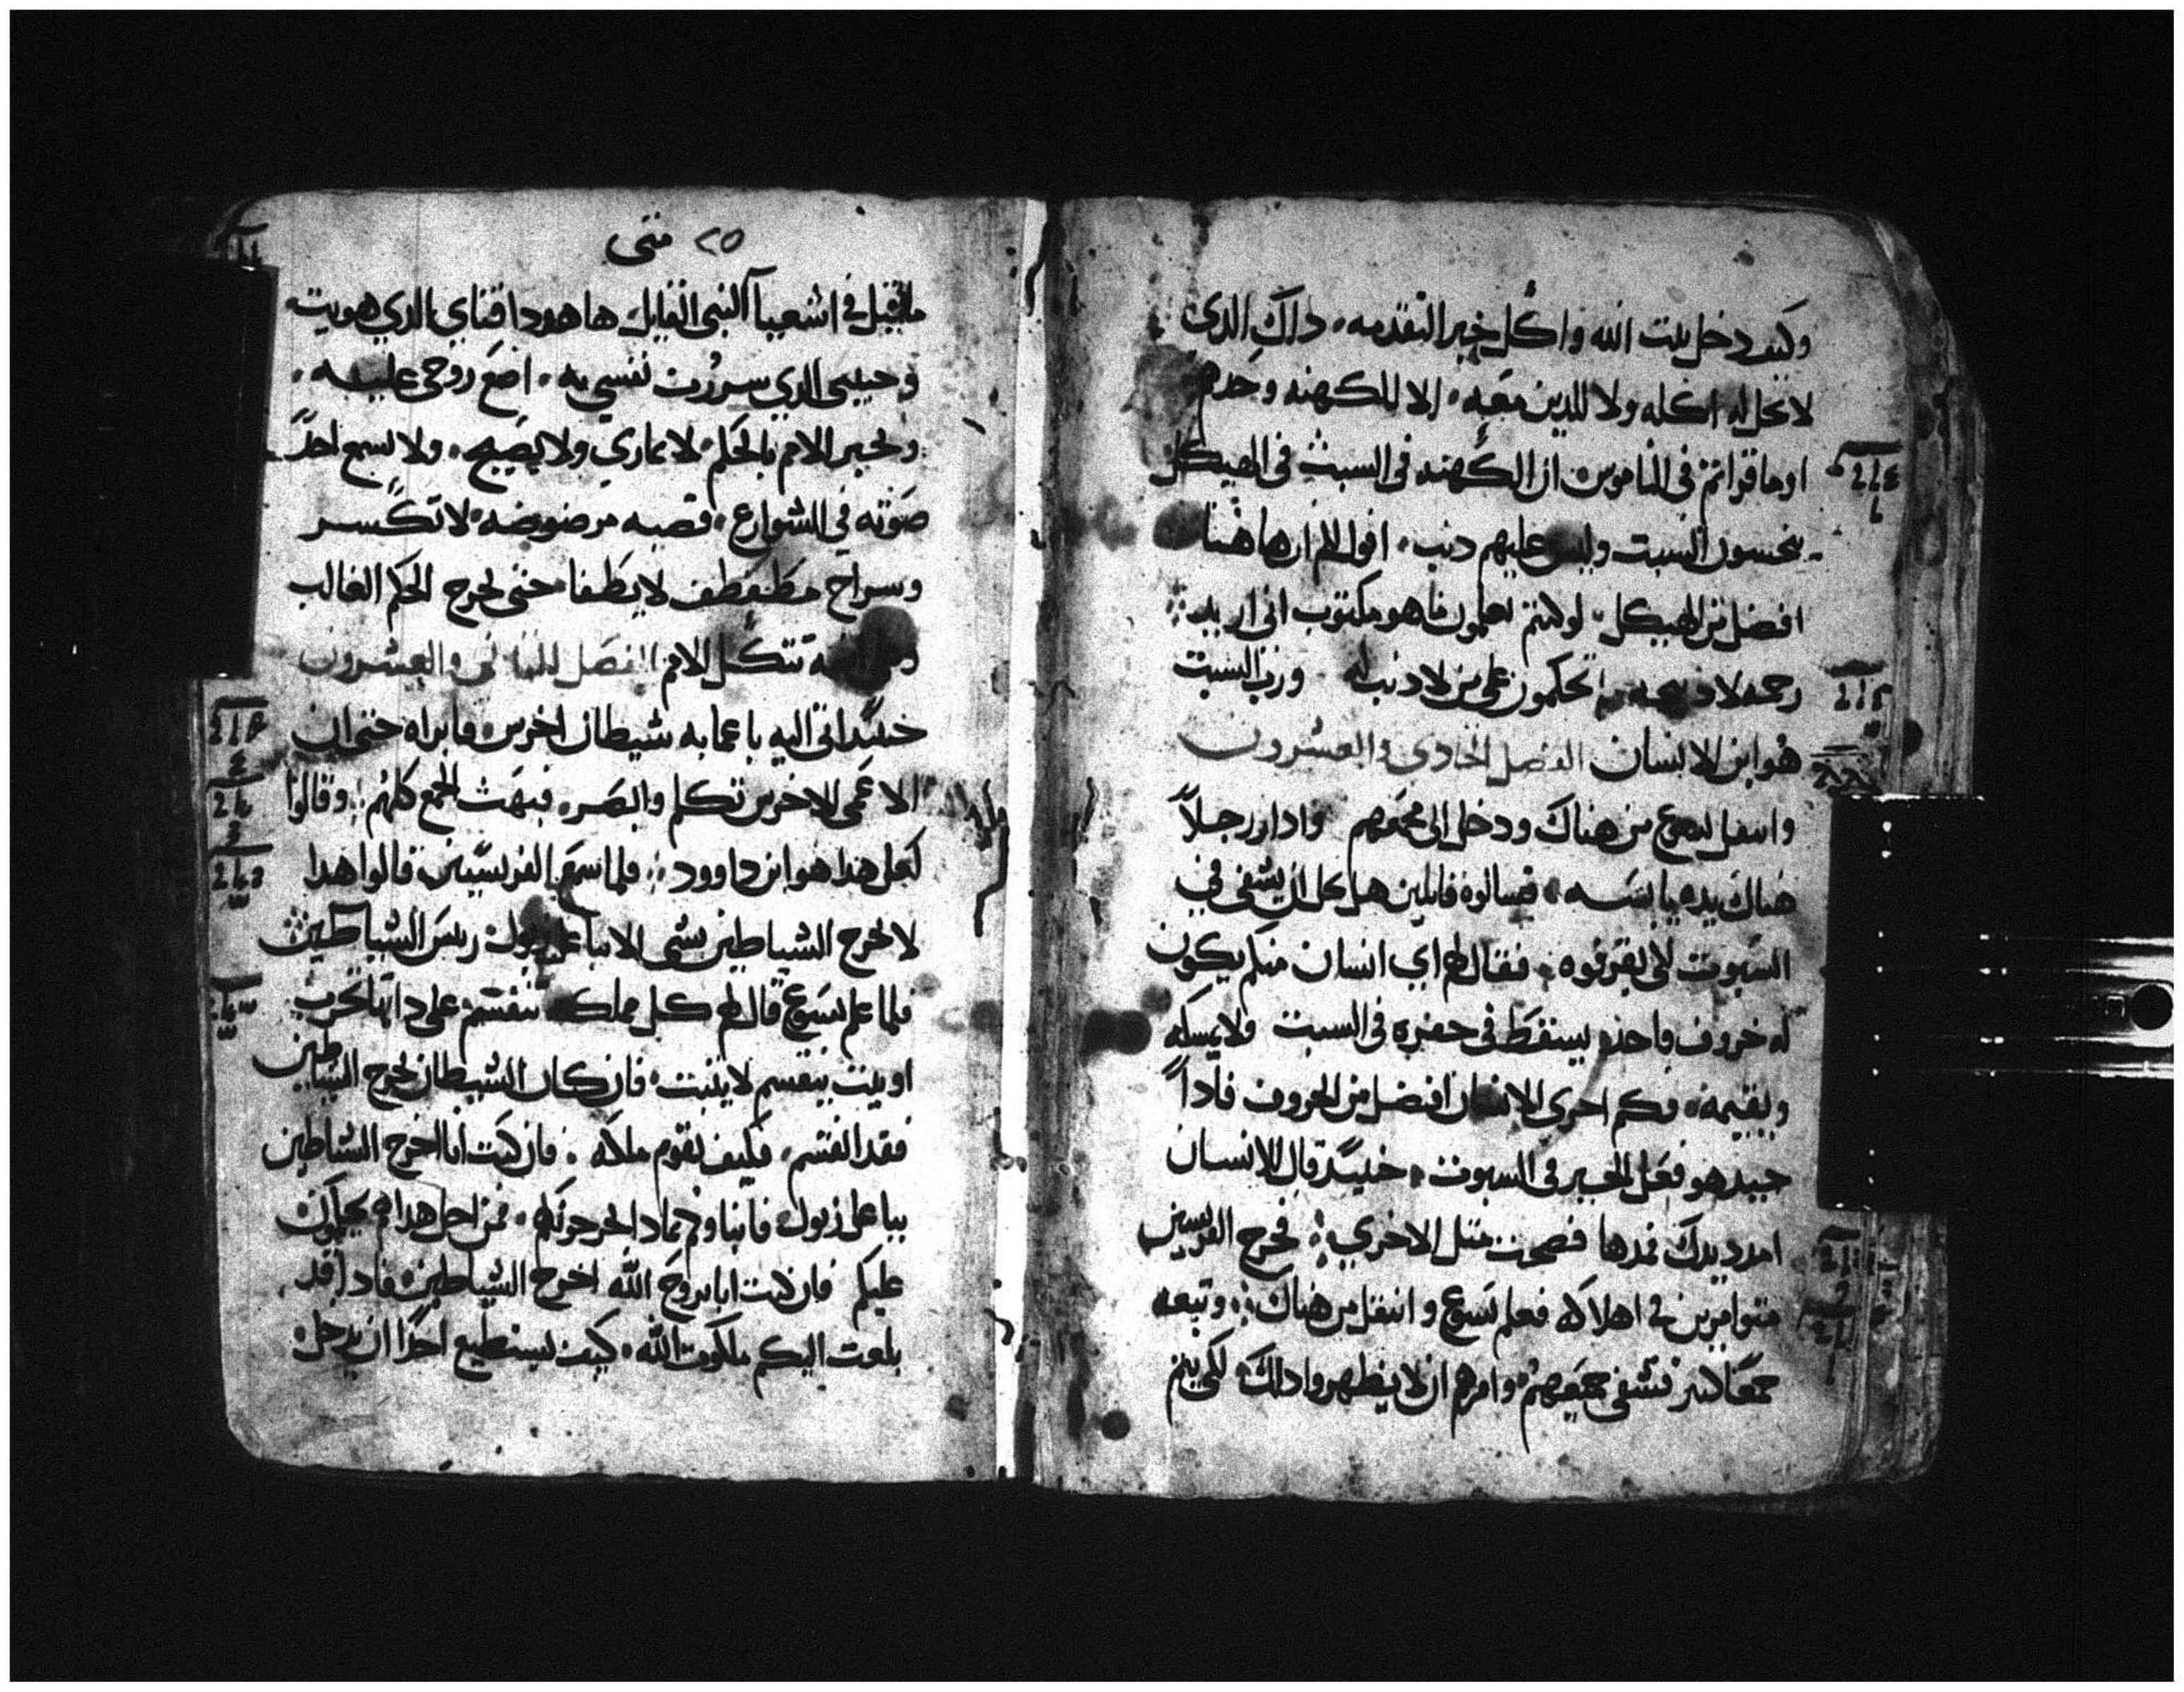 وكيف دخل بيت الله واكل خبز التقدمه، داك الدى
لا يحل له اكله ولا للدين معه، الا للكهنه وحدهم
اوما قراتم فى الناموس ان الكهنه فى السبت فى الهيكل
ينجسون السبت وليس عليهم دنب، اقول لكم ان هاهنا
افضل من الهيكل، لو كنتم تعلمون ما هو مكتوب انى اريد
رحمه لا دبيحه تحكمون على من لا دنب له ورب السبت
هو ابن الانسان الفصل الحادى والعشرون
وانتقل يسوع من هناك ودخل الى مجمعهم وادا رجلاً
هناك يده يابسه، فسالوه قايلين هل يحل ان يشفى في
السبوت لكى يقرفوه، فقال لهم اي انسان منكم يكون
له خروف واحد يسقط فى حفره فى السبت ولا يمسكه
ويقيمه، فكم احرى الانسان افضل من الخروف فاداً
جيد هو فعل الخير فى السبوت، حينيد قال للانسان
امدد يدك فمدها فصحت متل الاخري، فخرج الفريسين
متوامرين فى اهلاكه فعلم يسوع وانتقل من هناك، وتبعه
جمعًا كتير فشفى جميعهم وامرهم ان لا يظهروا دلك لكى يتم
٢٥ متى
ما قيل فى اشعيا النبى القايل، ها هودا فتاي الدي هويت
وحبيبى الدي سرت نفسي به، اضع روحى عليه،
ويخبر الامم بالحكم، لا يماري ولا يصيح، ولا يسمع احدً
صوته في الشوارع، قصبه مرضوضه لا تكسر
وسراج مطفطف لا يطفا حتى يخرج الحكم الغالب
تتكل الامم الفصل التانى والعشرون
حينيد اتى اليه باعما به شيطان اخرس، فابراه حتى ان
الاعمى الاخرس تكلم وابصر، فبهت الجمع كلهم، وقالوا
لعل هدا هو ابن داوود، فلما سمع الفريسيين قالوا هدا
لا يخرج الشياطين بشى الا بباعل زبول ريس الشياطين
فلما علم يسوع قال لهم كل مملكه تنقسم على داتها تخرب
او بيت ينقسم لا يتبت، فان كان الشيطان يخرج الشياطين
فقد انقسم، فكيف تقوم ملكه، فان كنت انا اخرج الشياطين
بباعل زبول، فابناوكم بمادا يخرجونهم، فمن اجل هدا هم يحكمون
عليكم فان كنت انا بروح الله اخرج الشياطين، فادا قد
بلغت اليكم ملكوت الله، كيف يستطيع احدًا ان يدخل